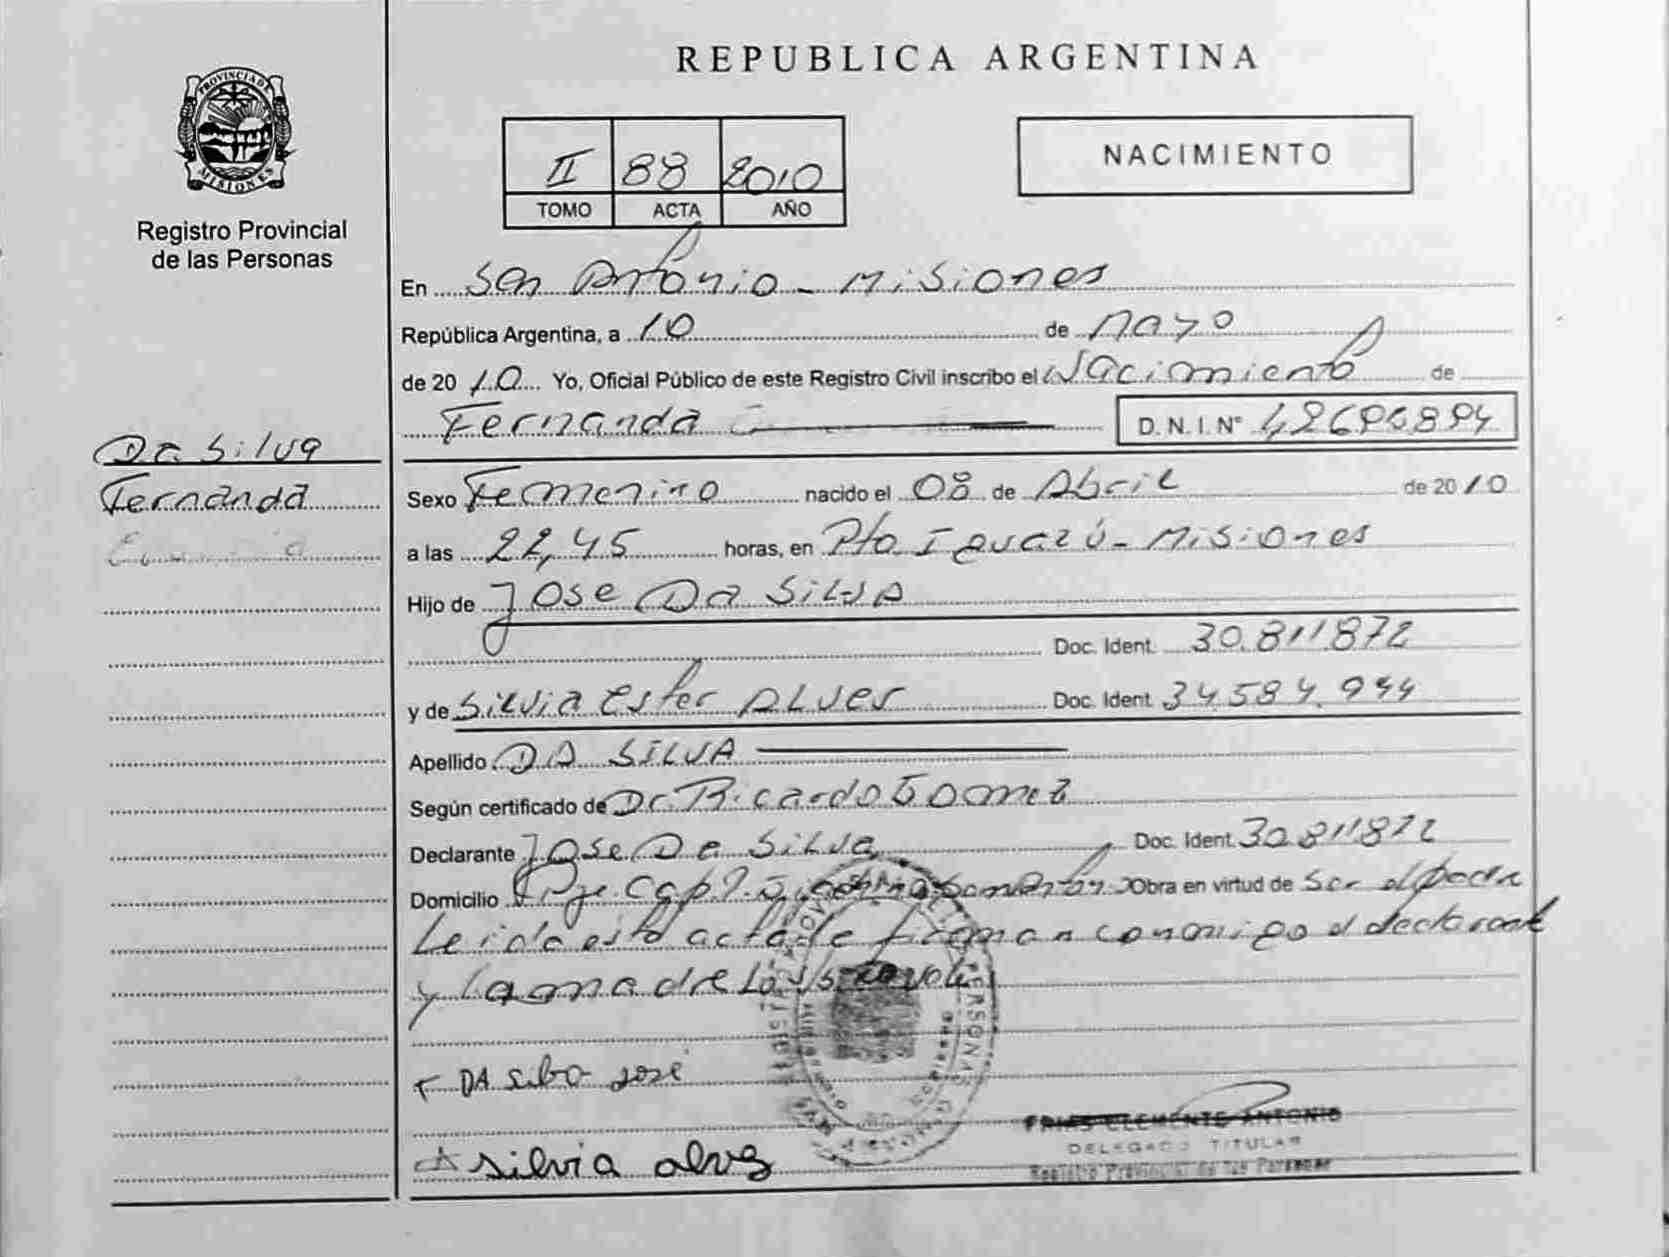 REPUBLICA ARGENTINA
PROVINCIA DE MISIONES
Registro Provincial de las Personas
NACIMIENTO
II 88 2010
TOMO ACTA AÑO
En San Antonio - Misiones
República Argentina, a 10 de Mayo
de 2010 Yo, Oficial Público de este Registro Civil inscribo el Nacimiento de
Fernanda
D. N. I. Nº
Da Silva
Fernanda
Sexo Femenino nacido el 08 de Abril de 2010
a las 22,45 horas, en Pto Iguazú - Misiones
Hijo de Jose Da Silva
Doc. Ident. 30.811872
y de Silvia Ester Alves Doc. Ident. 34.584.944
Apellido DA SILVA
Según certificado de Dr. Ricardo Gomez
Declarante Jose Da Silva Doc. Ident. 30.811872
Domicilio Obra en virtud de Ser el padre
Leida esta acta la firman conmigo el declarante
y la madre
DA silva José
silvia alvez
FRIES CLEMENTE ANTONIO
DELEGADO TITULAR
Registro Provincial de las Personas